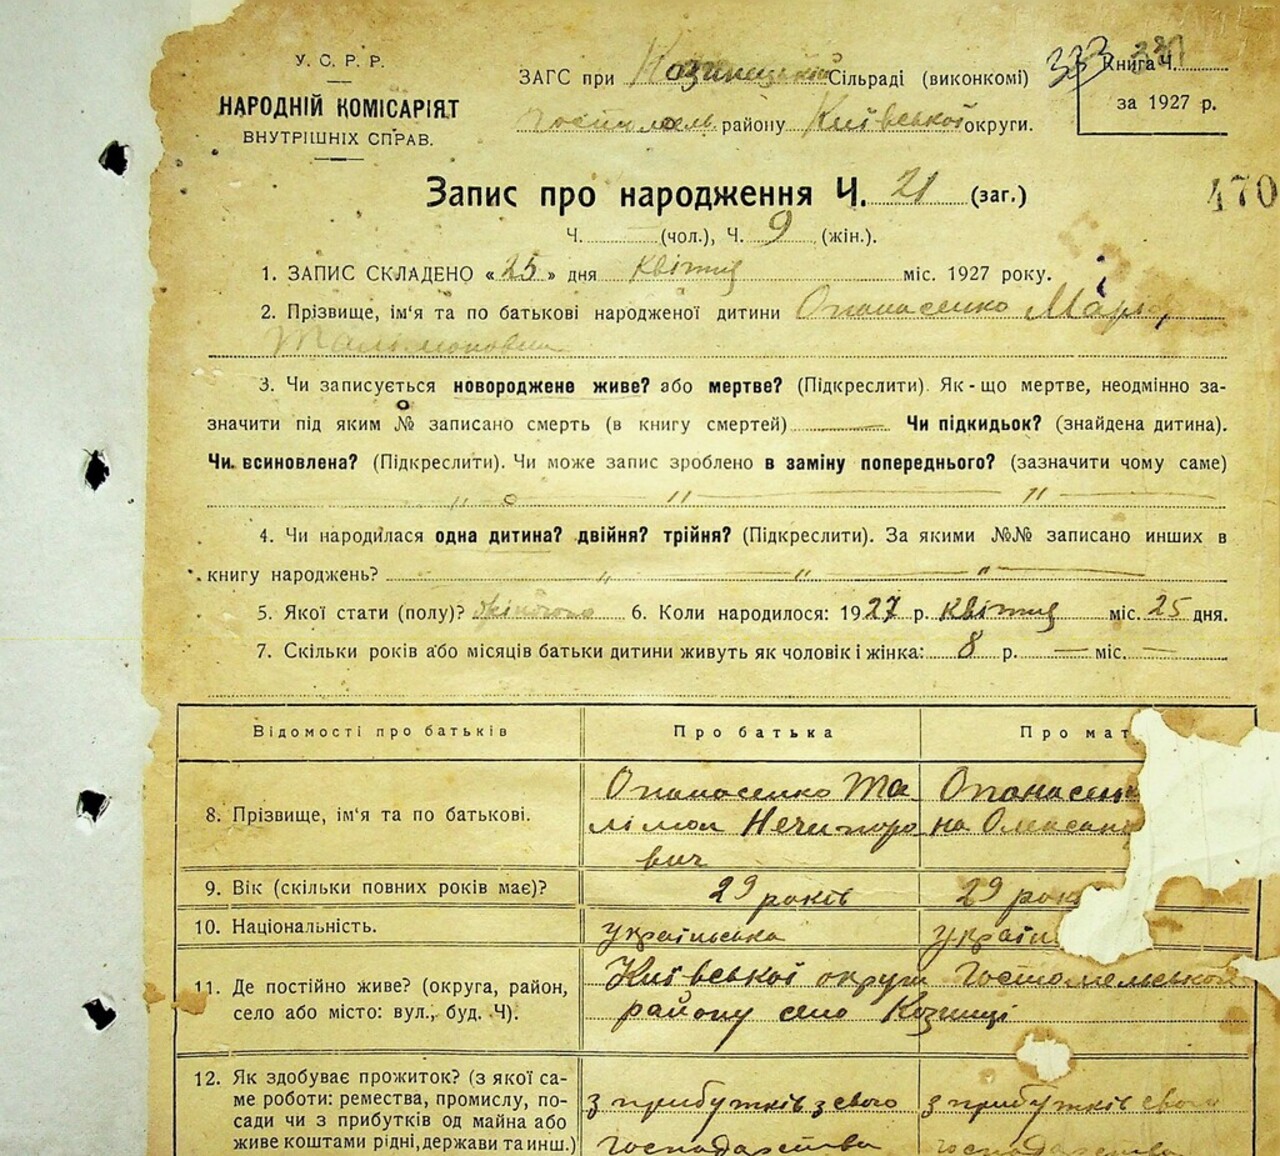 У. С. Р. Р.
НАРОДНІЙ КОМІСАРІЯТ
ВНУТРІШНІХ СПРАВ.
ЗАГС при Козинецькій Сільраді (виконкомі)
Гостомель. району Київської округи.
333
Книга Ч.
за 1927 р.
470
Запис про народження Ч. 21 (заг.)
Ч. — (чол.), Ч. 9 (жін.).
1. ЗАПИС СКЛАДЕНО «25» дня квітня міс. 1927 року.
2. Прізвище, ім'я та по батькові народженої дитини Опанасенко Марія
3. Чи записується новороджене живе? або мертве? (Підкреслити). Як-що мертве, неодмінно за-
значити під яким № записано смерть (в книгу смертей) — Чи підкидьок? (знайдена дитина).
Чи всиновлена? (Підкреслити). Чи може запис зроблено в заміну попереднього? (зазначити чому саме)
4. Чи народилася одна дитина? двійня? трійня? (Підкреслити). За якими №№ записано инших в
книгу народжень?
5. Якої стати (полу)? жіночого 6. Коли народилося: 1927 р. квітня міс. 25 дня.
7. Скільки років або місяців батьки дитини живуть як чоловік і жінка: 8 р. — міс. —
Відомості про батьків Про батька Про мат
8. Прізвище, ім'я та по батькові.
Опанасенко Та
лімон Нечипоро
вич
Опанасен
на Олександ
9. Вік (скільки повних років має)? 29 років 29 рок
10. Національність. українська україн
11. Де постійно живе? (округа, район,
село або місто: вул., буд. Ч).
Київської округи Гостомельського
району село Козинці
12. Як здобуває прожиток? (з якої са-
ме роботи: ремества, промислу, по-
сади чи з прибутків од майна або
живе коштами рідні, держави та инш.)
з прибутків з свого
господарства
з прибутків свого
господарства